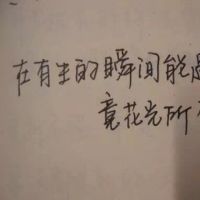 在有生的瞬间能遇
竟花光所